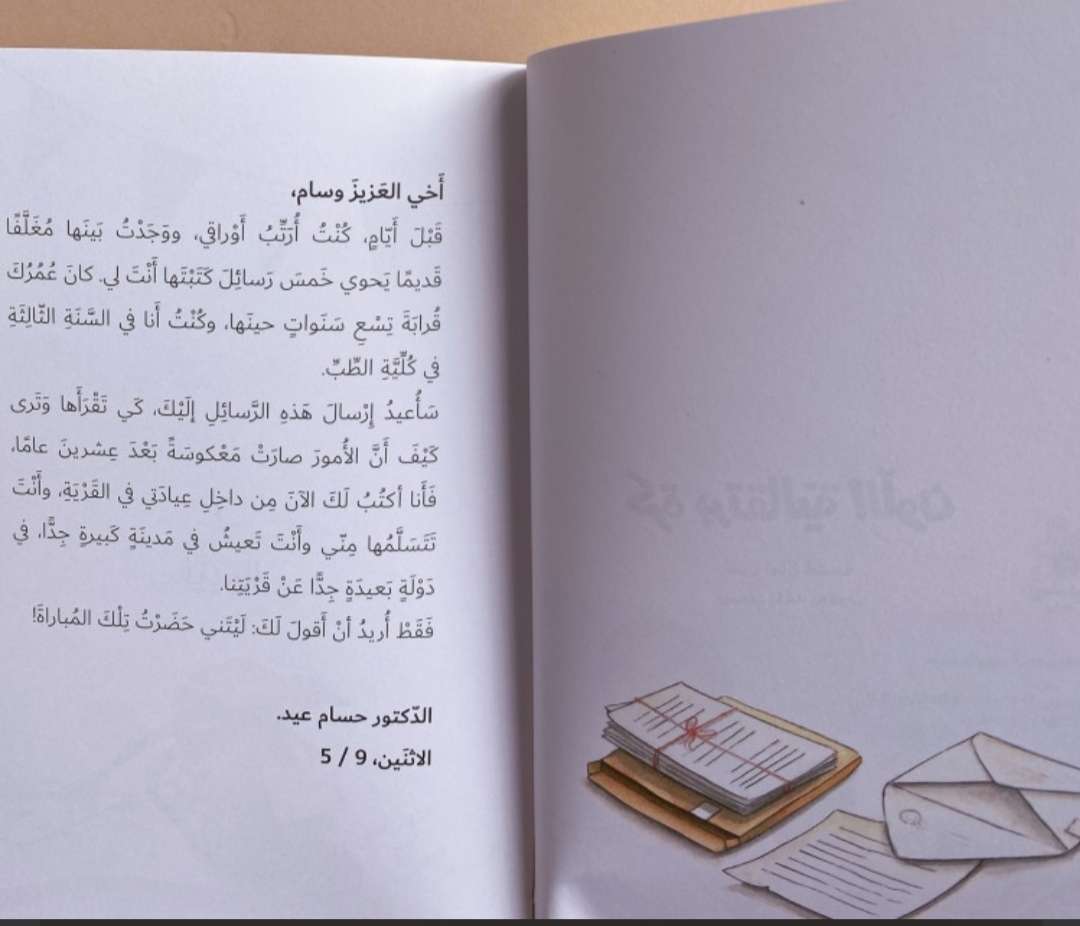 أَخي العَزيزَ وسام،
قَبْلَ أَيّامٍ، كُنْتُ أُرَتِّبُ أَوْراقي، ووَجَدْتُ بَينَها مُغَلَّفًا
قَديمًا يَحوي خَمسَ رَسائِلَ كَتَبْتَها أَنْتَ لي. كانَ عُمُرُكَ
قُرابَةَ تِسْعِ سَنَواتٍ حينَها، وكُنْتُ أَنا في السَّنَةِ الثّالِثَةِ
في كُلِّيَّةِ الطِّبِّ.
سَأُعيدُ إِرْسالَ هَذِهِ الرَّسائِلِ إِلَيْكَ، كَي تَقْرَأَها وَتَرى
كَيْفَ أَنَّ الأُمورَ صارَتْ مَعْكوسَةً بَعْدَ عِشرينَ عامًا،
فَأَنا أكتُبُ لَكَ الآنَ مِن داخِلِ عِيادَتي في القَرْيَةِ، وأَنْتَ
تَتَسَلَّمُها مِنّي وأَنْتَ تَعيشُ في مَدينَةٍ كَبيرةٍ جِدًّا، في
دَوْلَةٍ بَعيدَةٍ جِدًّا عَنْ قَرْيَتِنا.
فَقَطْ أُريدُ أنْ أَقولَ لَكَ: لَيْتَني حَضَرْتُ تِلْكَ المُباراةَ!
الدّكتور حسام عيد.
الاثنَين، 9 / 5
كرة برتقاليّة اللّون